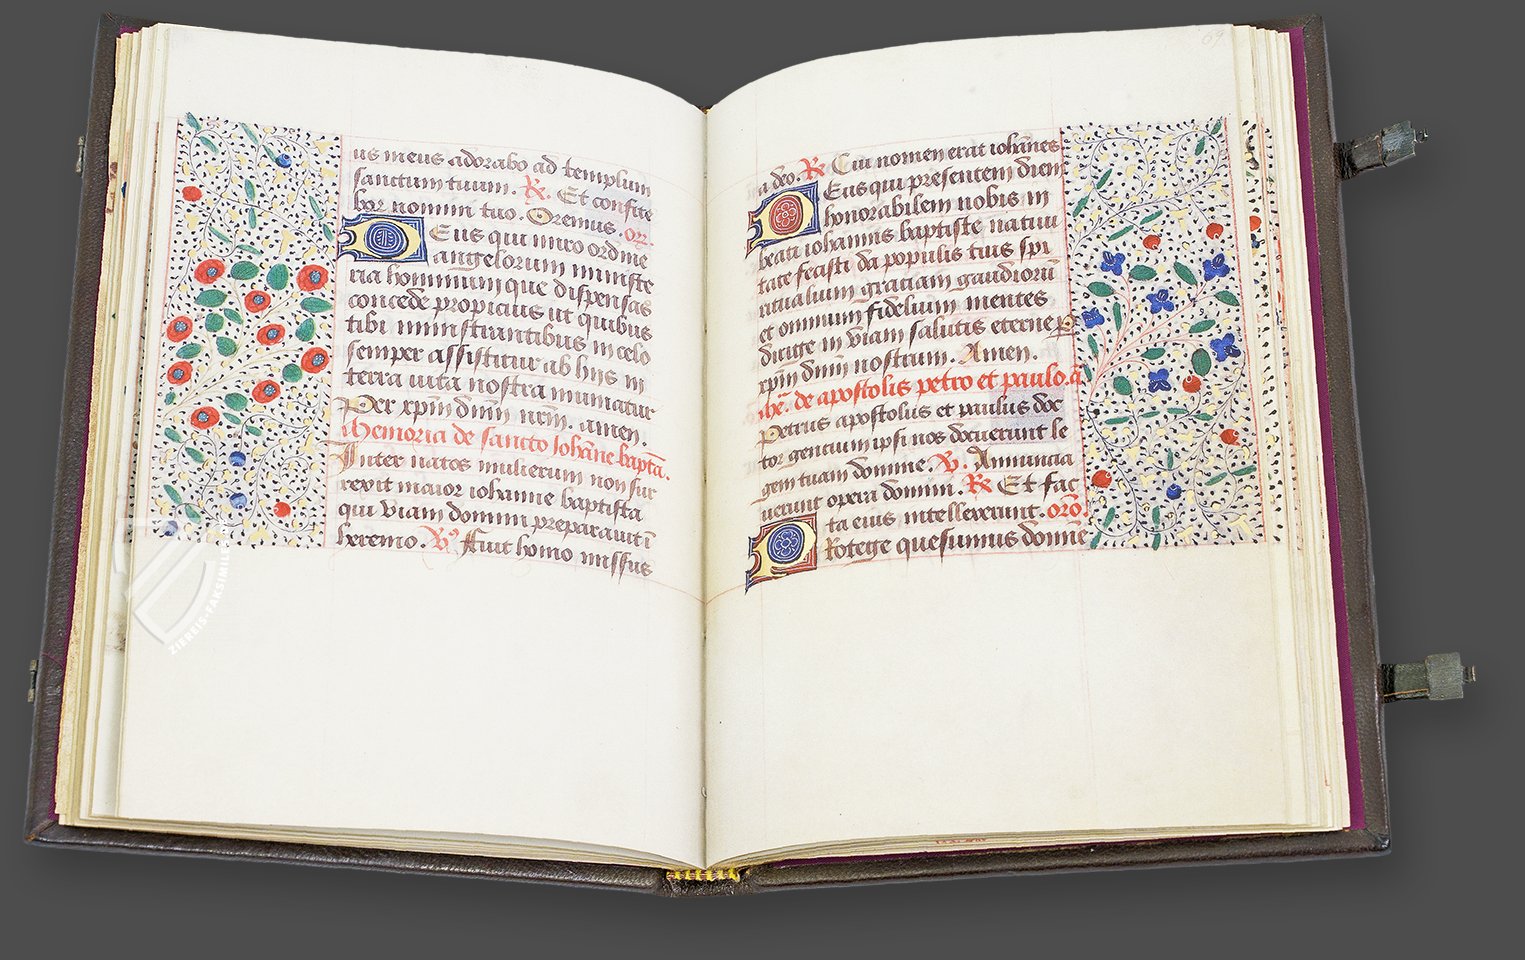 us meus adorabo ad templum
sanctum tuum. R. Et confite
bor nomini tuo. Oremus. or.
Deus qui miro ordine
angelorum ministe
ria hominumque dispensas
concede propicius ut quibus
tibi ministrantibus in celo
semper assistitur ab hijs in
terra uita nostra muniatur
Per xpm dnm nrm. amen.
Memoria de sancto Johane bapta.
Inter natos mulierum non sur
rexit maior iohanne baptista
qui viam domini preparauit i
heremo. V. Fuit homo missus
69
a deo. R. Cui nomen erat iohanes
Deus qui presentem diem
honorabilem nobis in
beati iohannis baptiste natiui
tate fecisti da populis tuis spi
ritualium gratiam gaudioru
et omnium fidelium mentes
dirige in viam salutis eterne p
xpm dnm nostrum. Amen.
de apostolis petro et paulo. a
Petrus apostolus et paulus doc
tor gentium ipsi nos docuerunt le
gem tuam domine. V. Annuncia
uerunt opera domini. R. Et fac
ta eius intellexerunt. oro.
Protege quesumus domine
ZIEREIS-FAKSIMILE